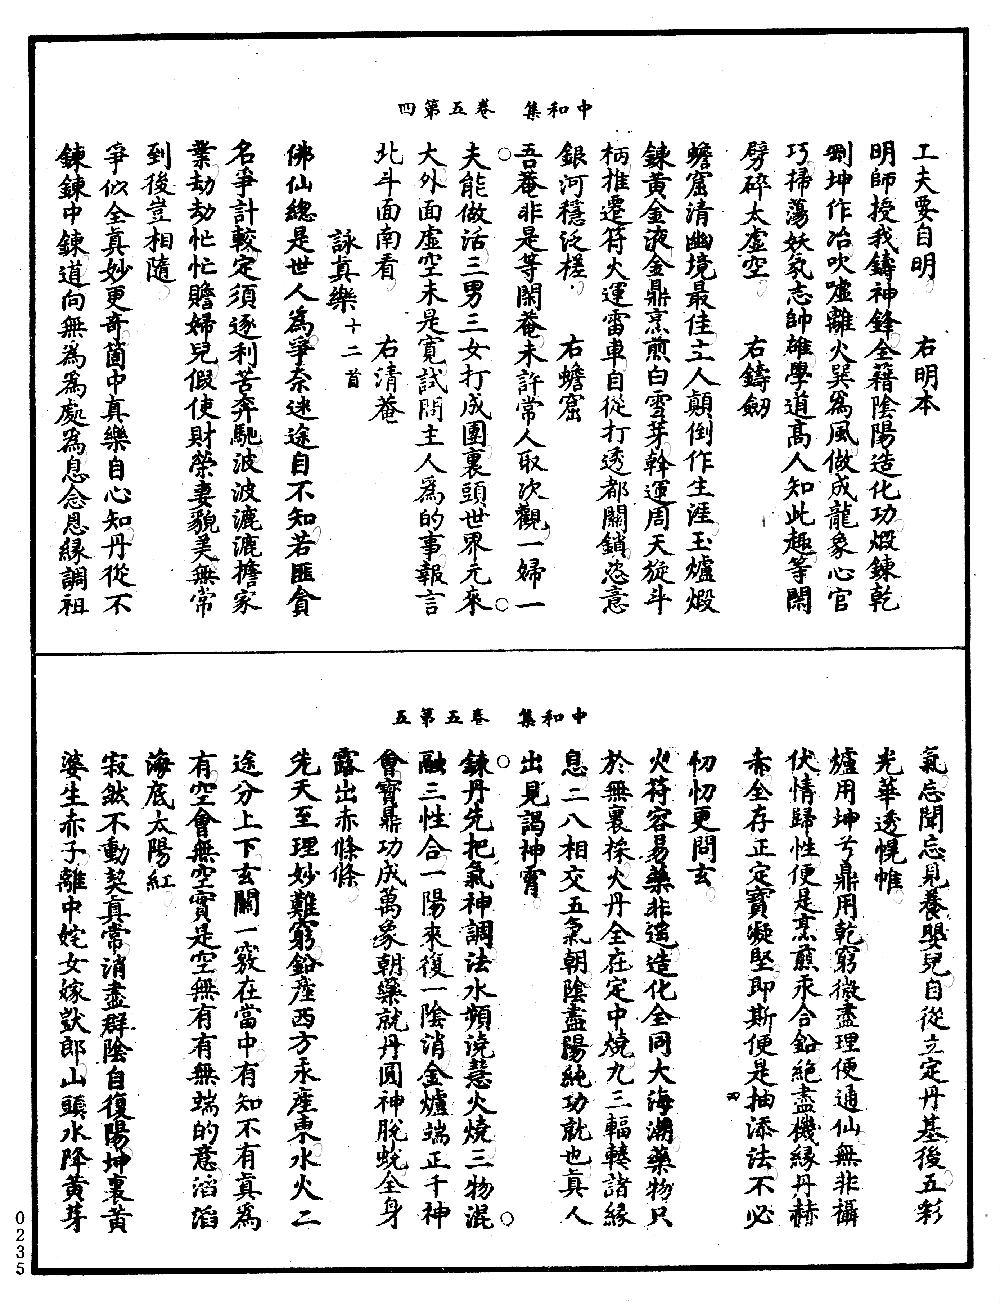 中和集　卷五第四
工夫要自明　　右明本
明師授我鑄神鋒全籍陰陽造化功煅鍊乾
剛坤作冶吹噓離火巽爲風做成龍象心官
巧掃蕩妖氛志帥雄學道高人知此趣等閑
劈碎太虛空　　右鑄劒
蟾窟清幽境最佳主人顛倒作生涯玉爐煅
鍊黃金液金鼎烹煎白雪芽斡運周天旋斗
柄推遷符火運雷車自從打透都關鎖恣意
銀河穩泛槎　　右蟾窟
吾菴非是等閑菴未許常人取次觀一婦一
夫能做活三男三女打成團裏頭世界元來
大外面虛空未是寬試問主人爲的事報言
北斗面南看　　右清菴
詠真樂十二首
佛仙總是世人爲爭奈迷途自不知若匪貪
名爭計較定須逐利苦奔馳波波漉漉擔家
業劫劫忙忙贍婦兒假使財榮妻貌美無常
到後豈相隨
爭似全真妙更奇箇中真樂自心知丹從不
鍊鍊中鍊道向無爲爲處爲息念息緣調祖
中和集　卷五第五
氣忘聞忘見養嬰兒自從立定丹基後五彩
光華透幌帷
爐用坤兮鼎用乾窮微盡理便通仙無非攝
伏情歸性便是烹煎汞合鉛絕盡機緣丹赫
赤全存正定寶凝堅即斯便是抽添法不必
忉忉更問玄
火符容易藥非遙造化全同大海潮藥物只
於無裏採火丹全在定中燒九三輻輳諸緣
息二八相交五氣朝陰盡陽純功就也真人
出見謁神霄
鍊丹先把氣神調法水頻澆慧火燒三物混
融三性合一陽來復一陰消金爐端正千神
會寶鼎功成萬象朝藥就丹圓神脫蛻全身
露出赤條條
先天至理妙難窮鉛產西方汞產東水火二
途分上下玄關一竅在當中有知不有真爲
有空會無空實是空無有有無端的意滔滔
海底太陽紅
寂然不動契真常消盡群陰自復陽坤裏黃
婆生赤子離中姹女嫁獃郎山頭水降黃芽
四
0235